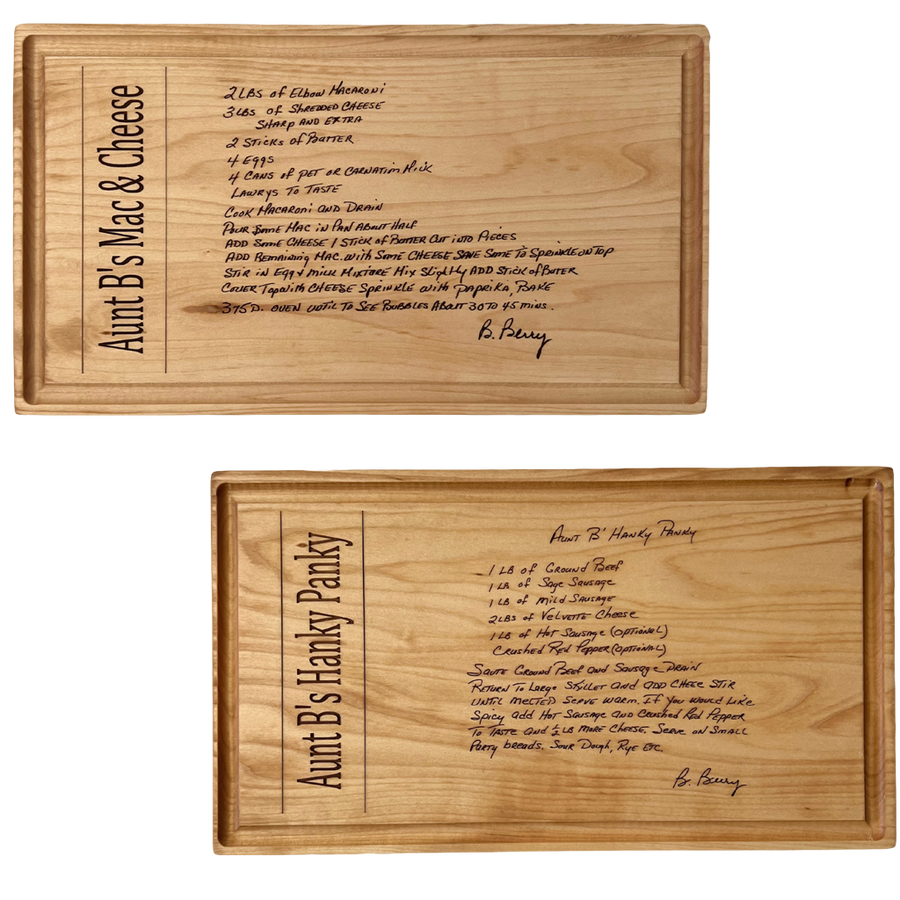 Aunt B's Mac & Cheese
2 LBS of Elbow Macaroni
3 LBS of Shredded Cheese
Sharp and Extra
2 Sticks of Butter
4 Eggs
4 Cans of Pet or Carnation Milk
Lawrys To Taste
Cook Macaroni and Drain
Pour Some Mac in Pan About Half
Add Some Cheese 1 Stick of Butter Cut into Pieces
Add Remaining Mac. with Some Cheese Save Some To Sprinkle on Top
Stir in Egg & Milk Mixture Mix Slightly Add Stick of Buter
Cover Top with Cheese Sprinkle with Paprika, Bake
375 D. oven until To See Bubbles About 30 To 45 mins.
B. Berry
Aunt B's Hanky Panky
Aunt B' Hanky Panky
1 LB of Ground Beef
1 LB of Sage Sausage
1 LB of Mild Sausage
2 LBS of Velvette Cheese
1 LB of Hot Sausage (optional)
Crushed Red Pepper (optional)
Saute Ground Beef and Sausage Drain
Return To Large Skillet and add Cheese Stir
until melted Serve warm. If you would Like
Spicy add Hot Sausage and Crushed Red Pepper
To Taste and ½ LB more Cheese. Serve on Small
Party breads. Sour Dough, Rye Etc.
B. Berry